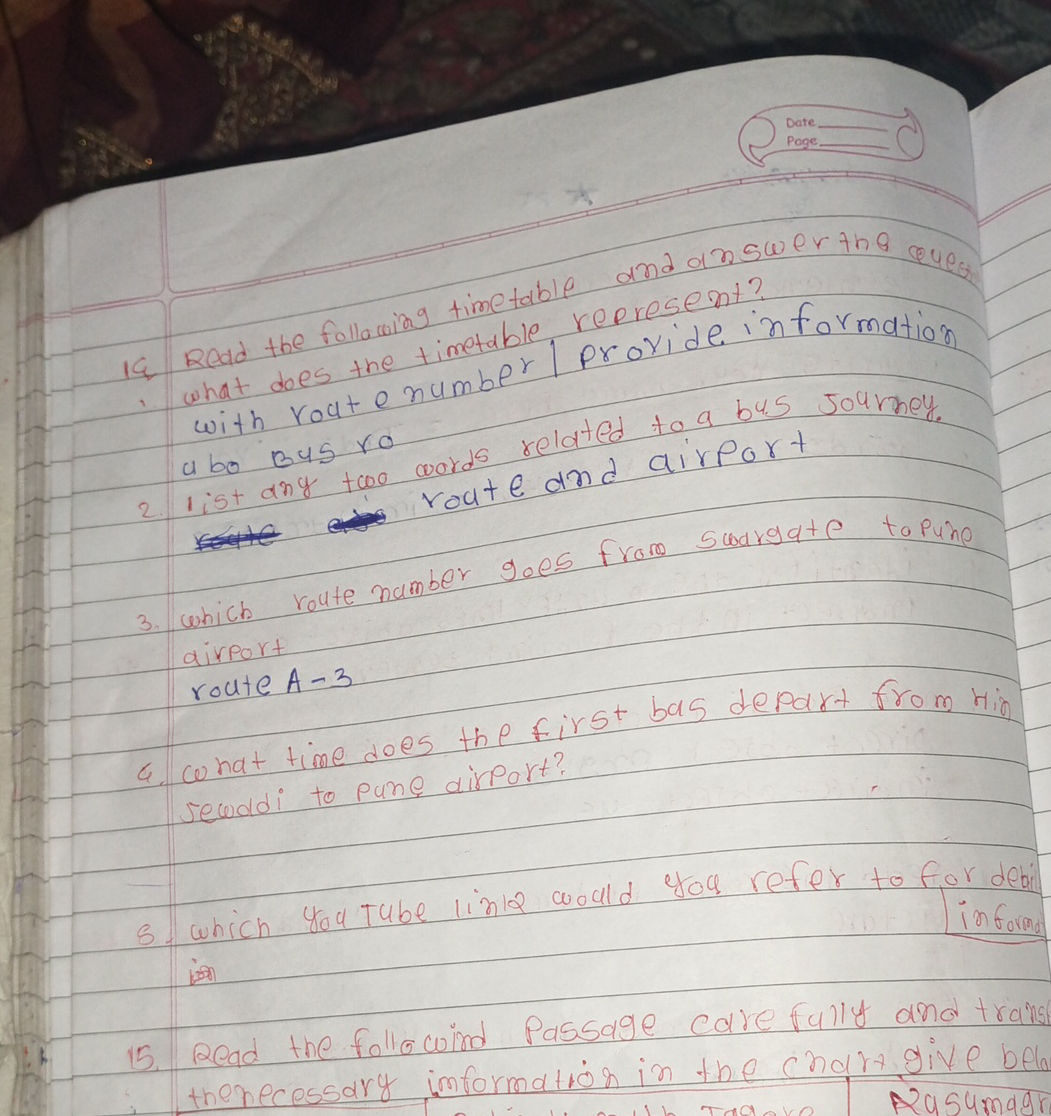 Date
Page
14 Read the following timetable and answer the ques
1 what does the timetable represent?
with route number / provide information
abo Bus ro
2. list any two words related to a bus journey.
route and airport
3. which route number goes from swargate to Pune
airport
route A-3
4. what time does the first bus depart from Hin
sewadi to Pune airport?
5 which you Tube link would you refer to for
informa
15. Read the followind Passage carefully and trans
the necessary imformation in the chart give belo